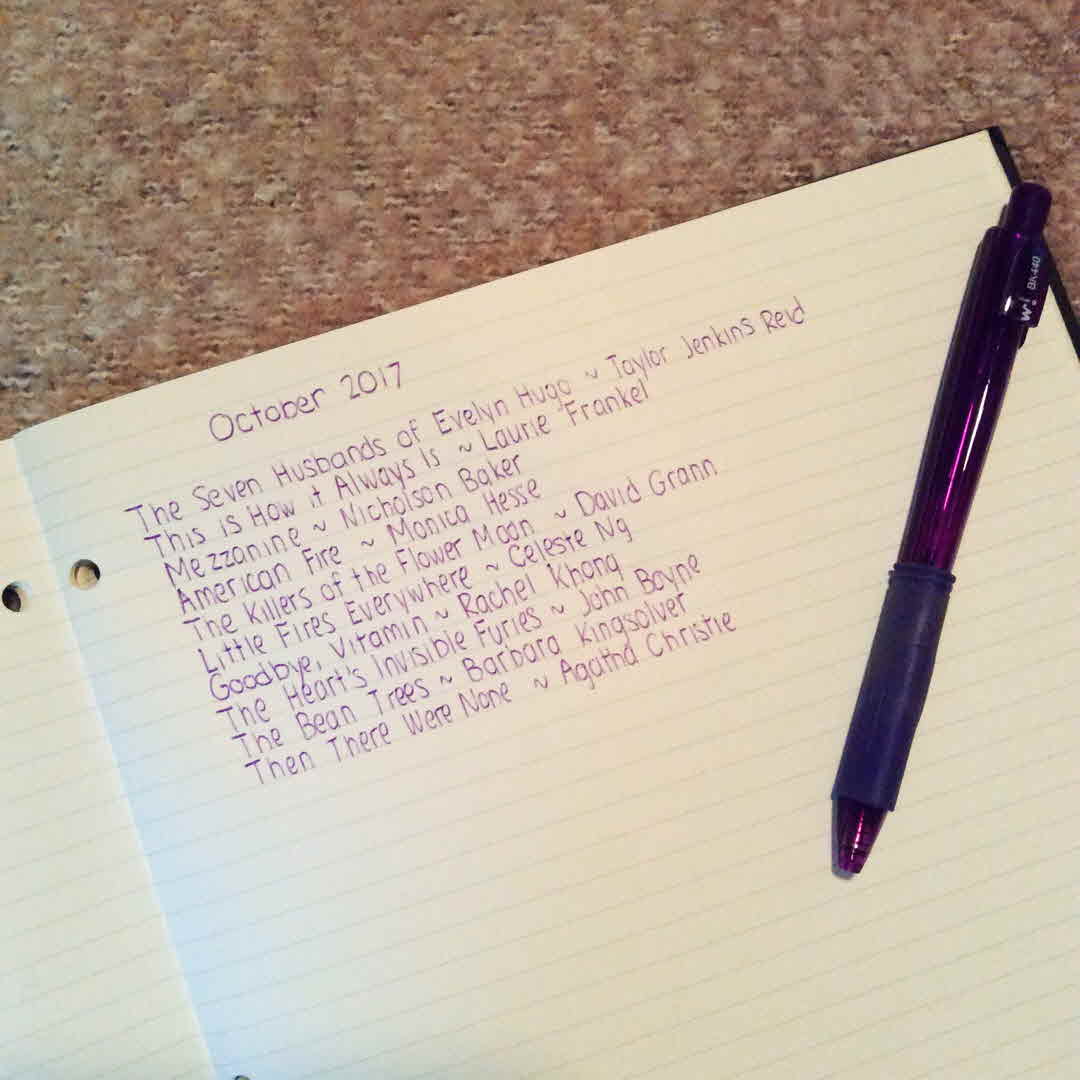 October 2017
The Seven Husbands of Evelyn Hugo ~ Taylor Jenkins Reid
This is How it Always Is ~ Laurie Frankel
Mezzanine ~ Nicholson Baker
American Fire ~ Monica Hesse
The Killers of the Flower Moon ~ David Grann
Little Fires Everywhere ~ Celeste Ng
Goodbye, Vitamin ~ Rachel Khong
The Heart's Invisible Furies ~ John Boyne
The Bean Trees ~ Barbara Kingsolver
Then There Were None ~ Agatha Christie
w! BK440